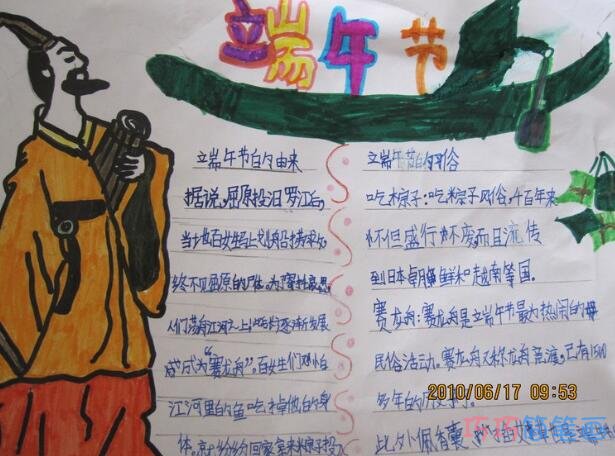 端午节
端午节的由来
据说,屈原投汨罗江后,
当地百姓马上划船捞救,
终不见屈原的尸体。为
人们荡舟江河之上,此后逐渐发展
成为“赛龙舟”。百姓们又怕
江河里的鱼吃掉他的身
体,就纷纷回家拿来米粽子投
端午节的习俗
吃粽子:吃粽子风俗,千百年来
不但盛行不衰而且流传
到日本朝鲜和越南等国。
赛龙舟:赛龙舟是端午节最为热闹的
民俗活动。赛龙舟又称龙舟竞渡,已有1500
多年的历史了。
此外佩香囊
2010/06/17 09:53
巧巧简笔画